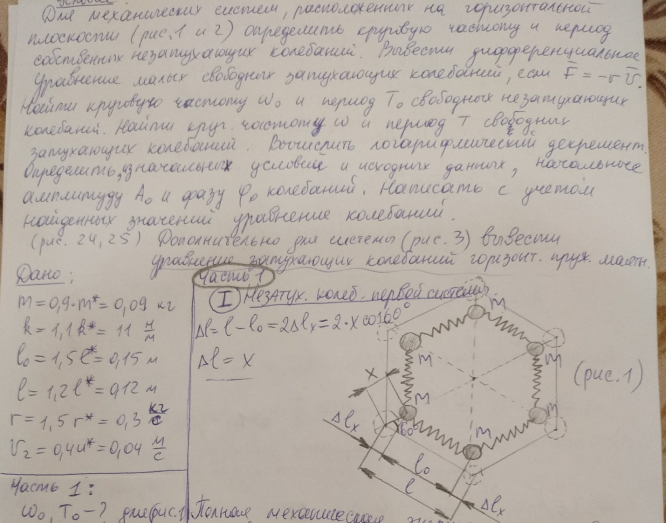 Для механических систем, расположенных на горизонтальной
плоскости (рис. 1 и 2) определить круговую частоту и период
собственных незатухающих колебаний. Вывести дифференциальное
уравнение малых свободных затухающих колебаний, если F̄ = -r v̄.
Найти круговую частоту ω₀ и период T₀ свободных незатухающих
колебаний. Найти круг. частоту ω и период T свободных
затухающих колебаний. Вычислить логарифмический декремент.
Определить, из начальных условий и исходных данных, начальные
амплитуду A₀ и фазу φ₀ колебаний. Написать с учетом
найденных значений уравнение колебаний.
(рис. 24, 25) Дополнительно для системы (рис. 3) вывести
уравнение затухающих колебаний горизонт. пруж. маятн.
Дано:
m = 0,9·m* = 0,09 кг
k = 1,1k* = 11 н/м
l₀ = 1,5l* = 0,15 м
l = 1,2l* = 0,12 м
r = 1,5r* = 0,3 кг/с
v₂ = 0,4u* = 0,04 м/с
Часть 1:
ω₀, T₀ - ? для рис. 1
Часть 1
I Незатух. колеб. первой системы.
Δl = l - l₀ = 2Δlₓ = 2·x cos60°
Δl = x
m
m
m
m
m
m
x
60°
Δlₓ
l₀
l
Δlₓ
(рис. 1)
Полная механическая